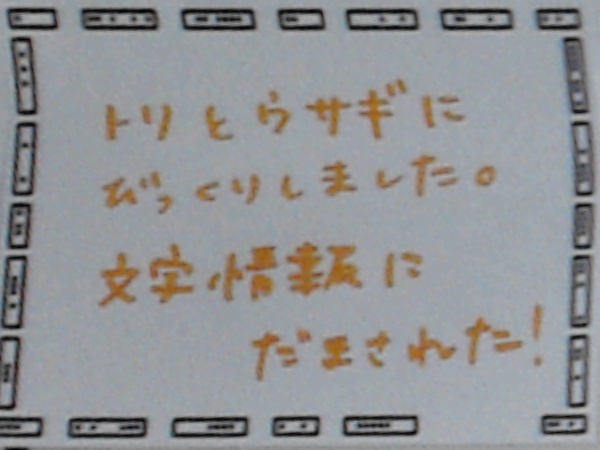 トリとうサギに
びっくりしました。
文字情報に
だまされた!